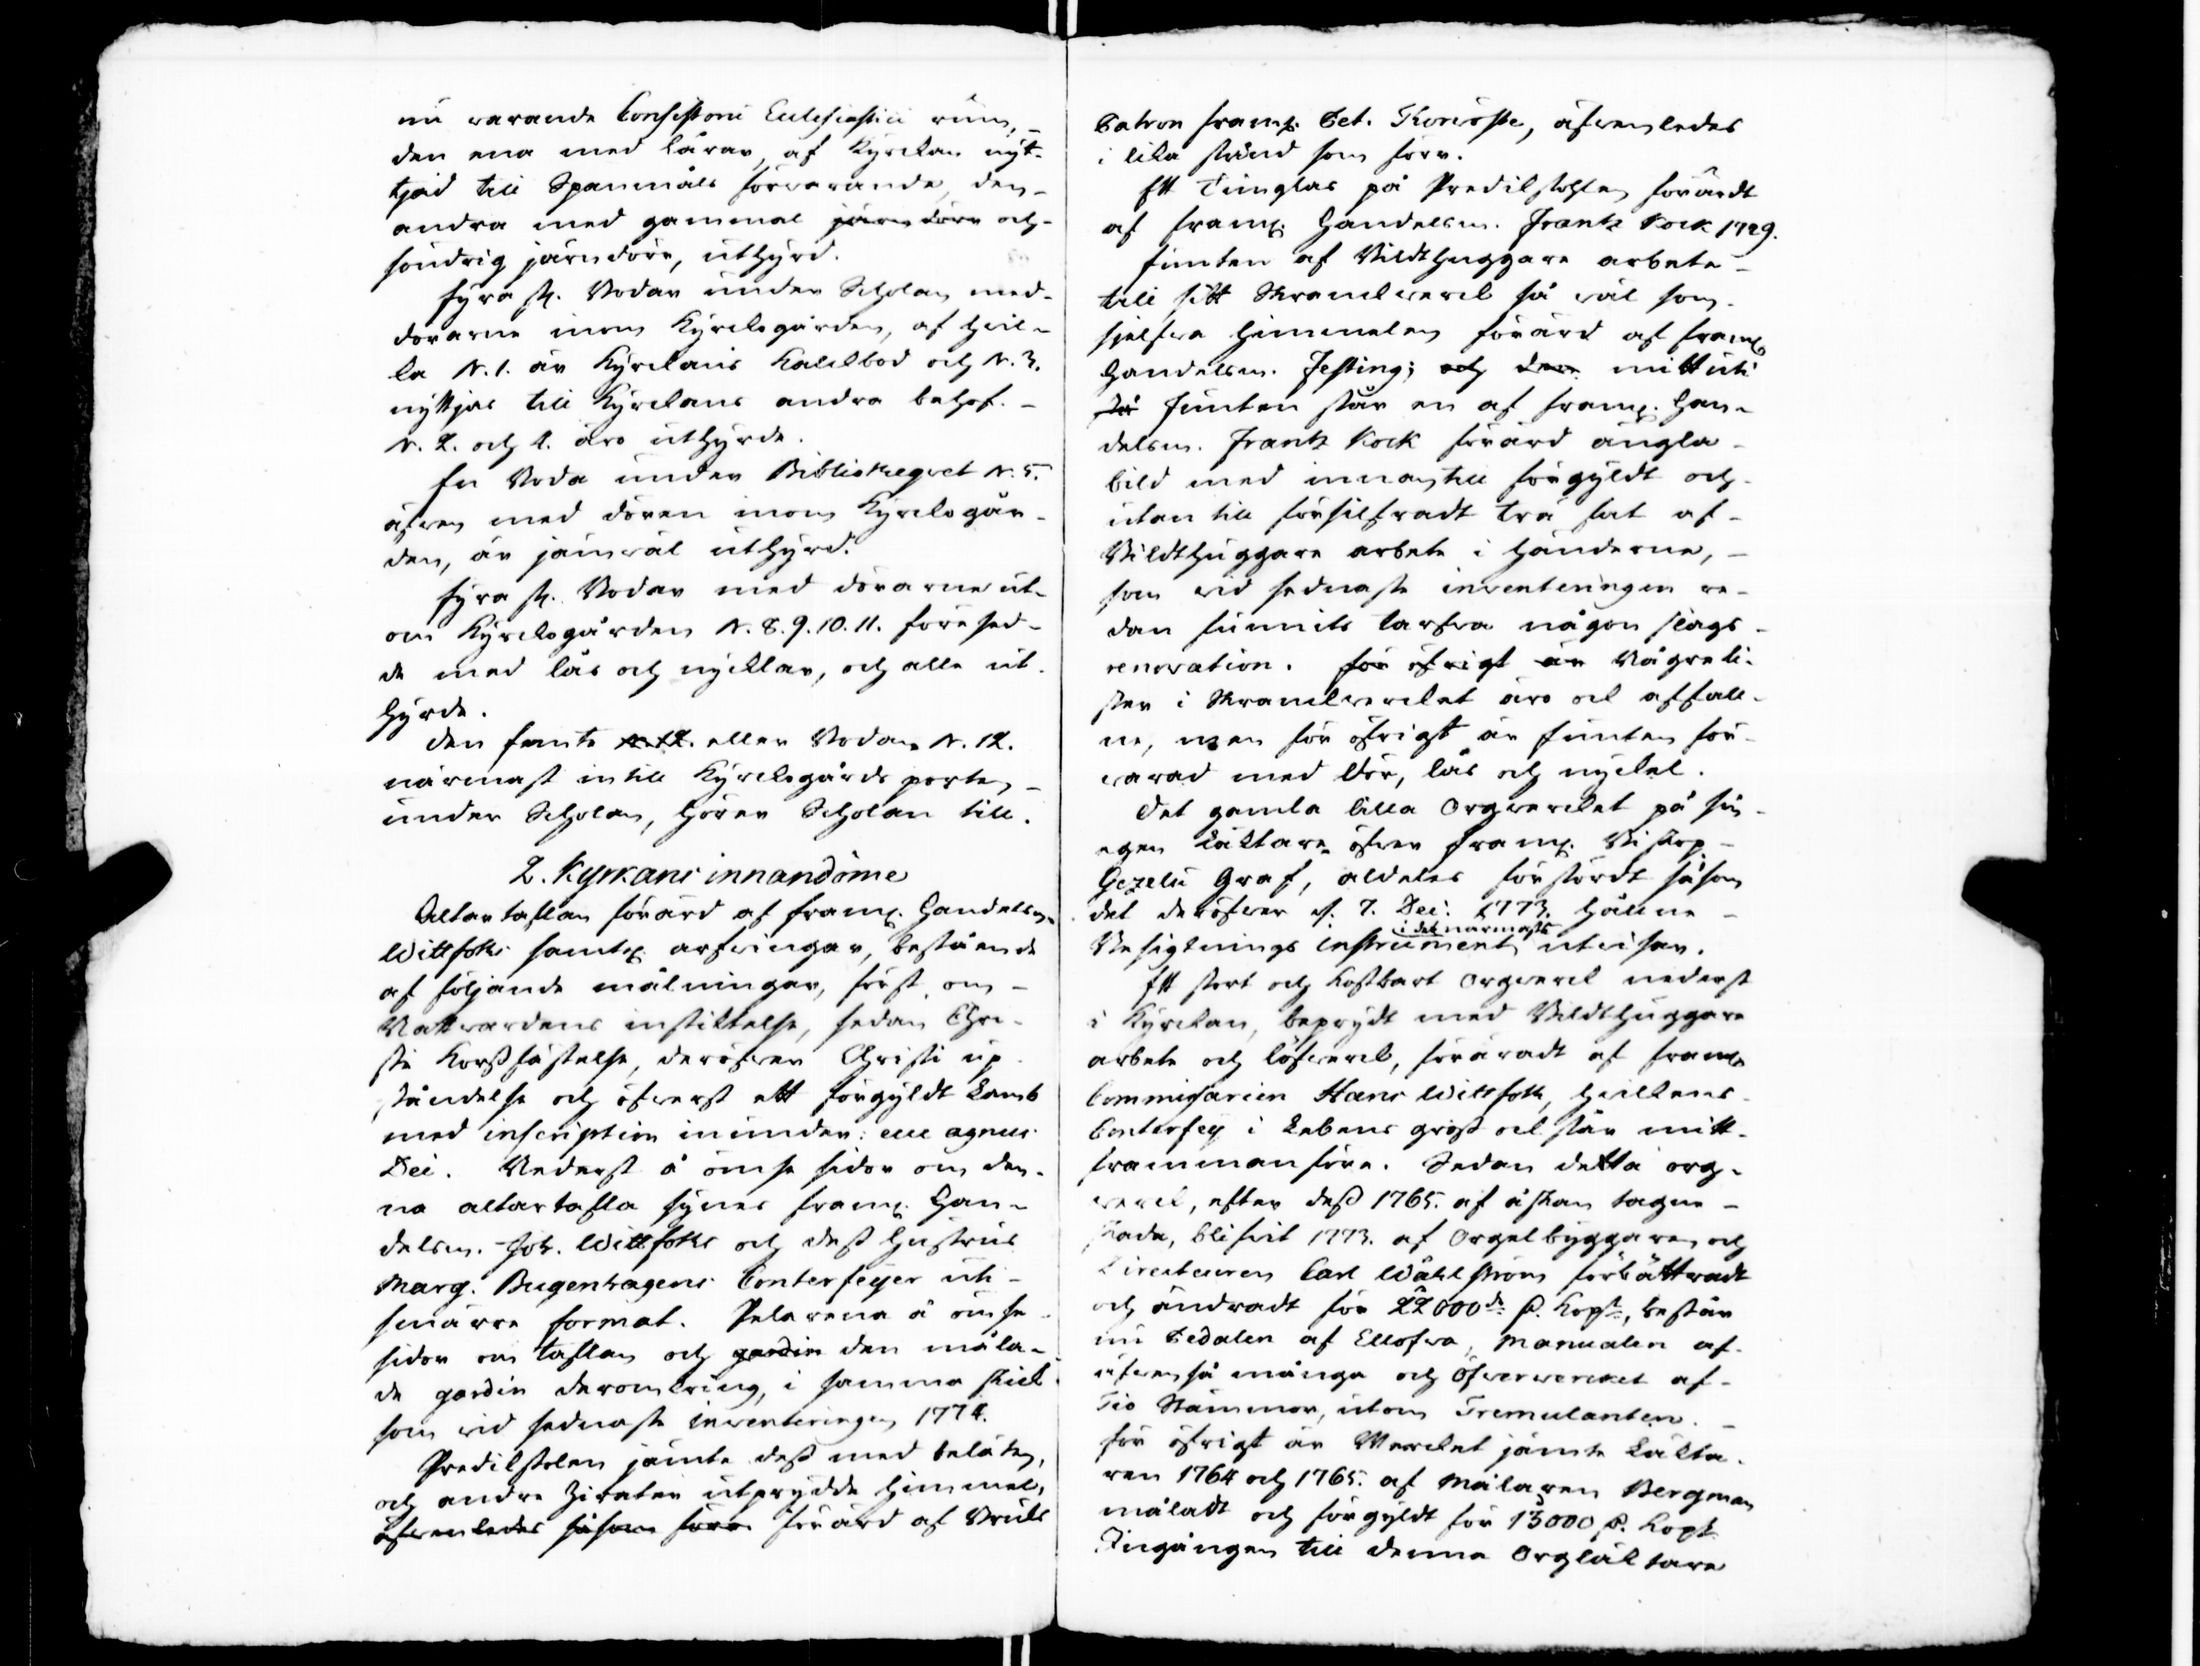 nu varande Consistorii Ecclesiastici rum,
den ena med lårar, af Kyrckan nyt-
tjad till Spannmåls förvarande, den
andra med gammal järn dörr och
söndrig järndörr, uthyrd.
Fyra st. Bodar under Scholan med
dörarne inom Kyrckogården, af hvil-
ka N. 1. är Kyrckans Kalckbod och N. 3.
nyttjas till Kyrckans andra behof.
N. 2. och 4. äro uthyrde.
En Boda under Bibliotheqvet N. 5.
äfven med dören inom Kyrckogår-
den, är jämväl uthyrd.
Fyra st. Bodar med dörarne ut-
om Kyrckogården N. 8. 9. 10. 11. försed-
de med lås och nycklar, och alla ut-
hyrde.
Den femte N. 12. eller Bodan N. 12.
närmast intill Kyrckogårds porten
under Scholan, hörer Scholan till.
2. Kyrkans innandöme
Altartaflan förärd af framl. Handelsm.
Wittfoths samtl. arfvingar, bestående
af följande målningar, först om
Nattvardens instiktelse, sedan Chri-
sti Korssfästelse, deröfver Christi up-
ståndelse och öfverst ett förgyldt Lamb
med inscription inunder: ecce agnus
Dei. Nederst å ömse sidor om den-
na altartafla synes framl. Han-
delsm. Joh. Wittfoths och dess hustrus
Marg. Bugenhagens Conterfeyer uti
smärre format. Pelarena å ömse
sidor om taflan och gardin den måla-
de gardin deromkring, i samma skick
som vid sednaste inventeringen 1774.
Predikstolen jämte dess med beläten,
och andre Zirater utprydde himmel,
äfvenledes såsom förr förärd af Bruks
Patron framl. Pet. Thorwöste, äfvenledes
i lika stånd som förr.
Ett Timglas på Predikstohlen förärdt
af framl. Handelsm. Frantz Kock 1729.
Funten af Bildthuggare arbete
till sitt Skranckverck så väl som
sjelfva himmelen förärd af framl.
Handelsm. Festing; och dess mitt uti
står Funten står en af framl. Han-
delsm. Frantz Kock förärd ängla
bild med innantill förgyldt och
utantill försilfradt trä fat af
Bildthuggare arbete i händerne,
som vid sednaste inventeringen re-
dan funnits tarfva någon slags
renovation. För öfrigt är Några li-
ster i Skranckvercket äro ock affall-
ne, men för öfrigt är Funten för-
varad med Dör, lås och nyckel.
Det gamla lilla Orgvercket på sin
egen Läktare öfver framl. Biskop
Gezelii Graf, aldeles förstördt såsom
det deröfver d. 7. Dec. 1773. hållne
i det närmaste
Besigtnings instrument utvisar.
Ett stort och kostbart Orgverck nederst
i Kyrckan, beprydt med Bildthuggare
arbete och löfverck, föräradt af framl.
Commissarien Hans Wittfoth, hvilkens
Conterfey i Lebens gross ock står mitt
frammanföre. Sedan detta org-
verck, efter dess 1765. af åskan tagne
skada, blifvit 1773. af Orgelbyggaren och
Directeuren Carl Wåhlström förbättradt
och ändradt för 22000 dr. S. Kopt., består
nu Pedalen af Ellofva, Manualen af
äfven så många och Öfververcket af
Tio Stämmor, utom Tremulanten.
För öfrigt är Vercket jämte Läkta-
ren 1764 och 1765. af Målaren Bergman
måladt och förgyldt för 13000 S. Kopt.
Ingången till denna Orgläktare